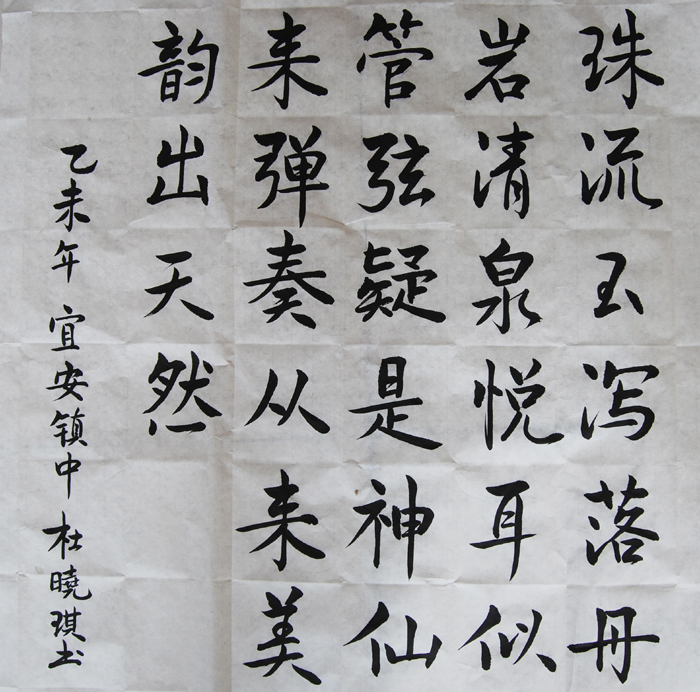 珠流玉泻落丹
岩清泉悦耳似
管弦疑是神仙
来弹奏从来美
韵出天然
乙未年 宜安镇中 杜晓琪书